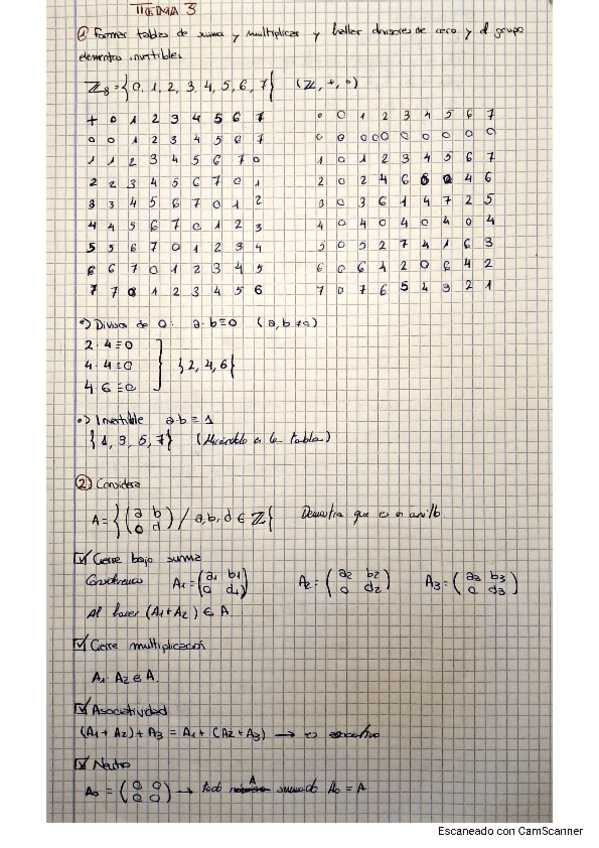 TEMA 3
① Formar tablas de suma y multiplicar y hallar divisores de cero y el grupo
elementos invertibles
Z₈ = {0, 1, 2, 3, 4, 5, 6, 7} (Z, +, ·)
+ 0 1 2 3 4 5 6 7
0 0 1 2 3 4 5 6 7
1 1 2 3 4 5 6 7 0
2 2 3 4 5 6 7 0 1
3 3 4 5 6 7 0 1 2
4 4 5 6 7 0 1 2 3
5 5 6 7 0 1 2 3 4
6 6 7 0 1 2 3 4 5
7 7 0 1 2 3 4 5 6
· 0 1 2 3 4 5 6 7
0 0 0 0 0 0 0 0 0
1 0 1 2 3 4 5 6 7
2 0 2 4 6 0 2 4 6
3 0 3 6 1 4 7 2 5
4 0 4 0 4 0 4 0 4
5 0 5 2 7 4 1 6 3
6 0 6 4 2 0 6 4 2
7 0 7 6 5 4 3 2 1
•) Divisor de 0: a·b=0 (a,b≠0)
2·4≡0
4·4≡0 {2,4,6}
4·6≡0
•) Invertible a·b=1
{1, 3, 5, 7} (Mirándolo en la tabla)
② Considera
A = {(a b / 0 d) / a,b,d ∈ Z} Demuestra que es anillo.
☑ Cierre bajo suma
Consideramos A₁=(a₁ b₁ / 0 d₁) A₂=(a₂ b₂ / 0 d₂) A₃=(a₃ b₃ / 0 d₃)
Al hacer (A₁+A₂) ∈ A
☑ Cierre multiplicación
A₁·A₂ ∈ A.
☑ Asociatividad
(A₁+A₂)+A₃ = A₁+(A₂+A₃) → es asociativo
☑ Neutro
A₀ = (0 0 / 0 0) → todo A sumando A₀ = A
Escaneado con CamScanner